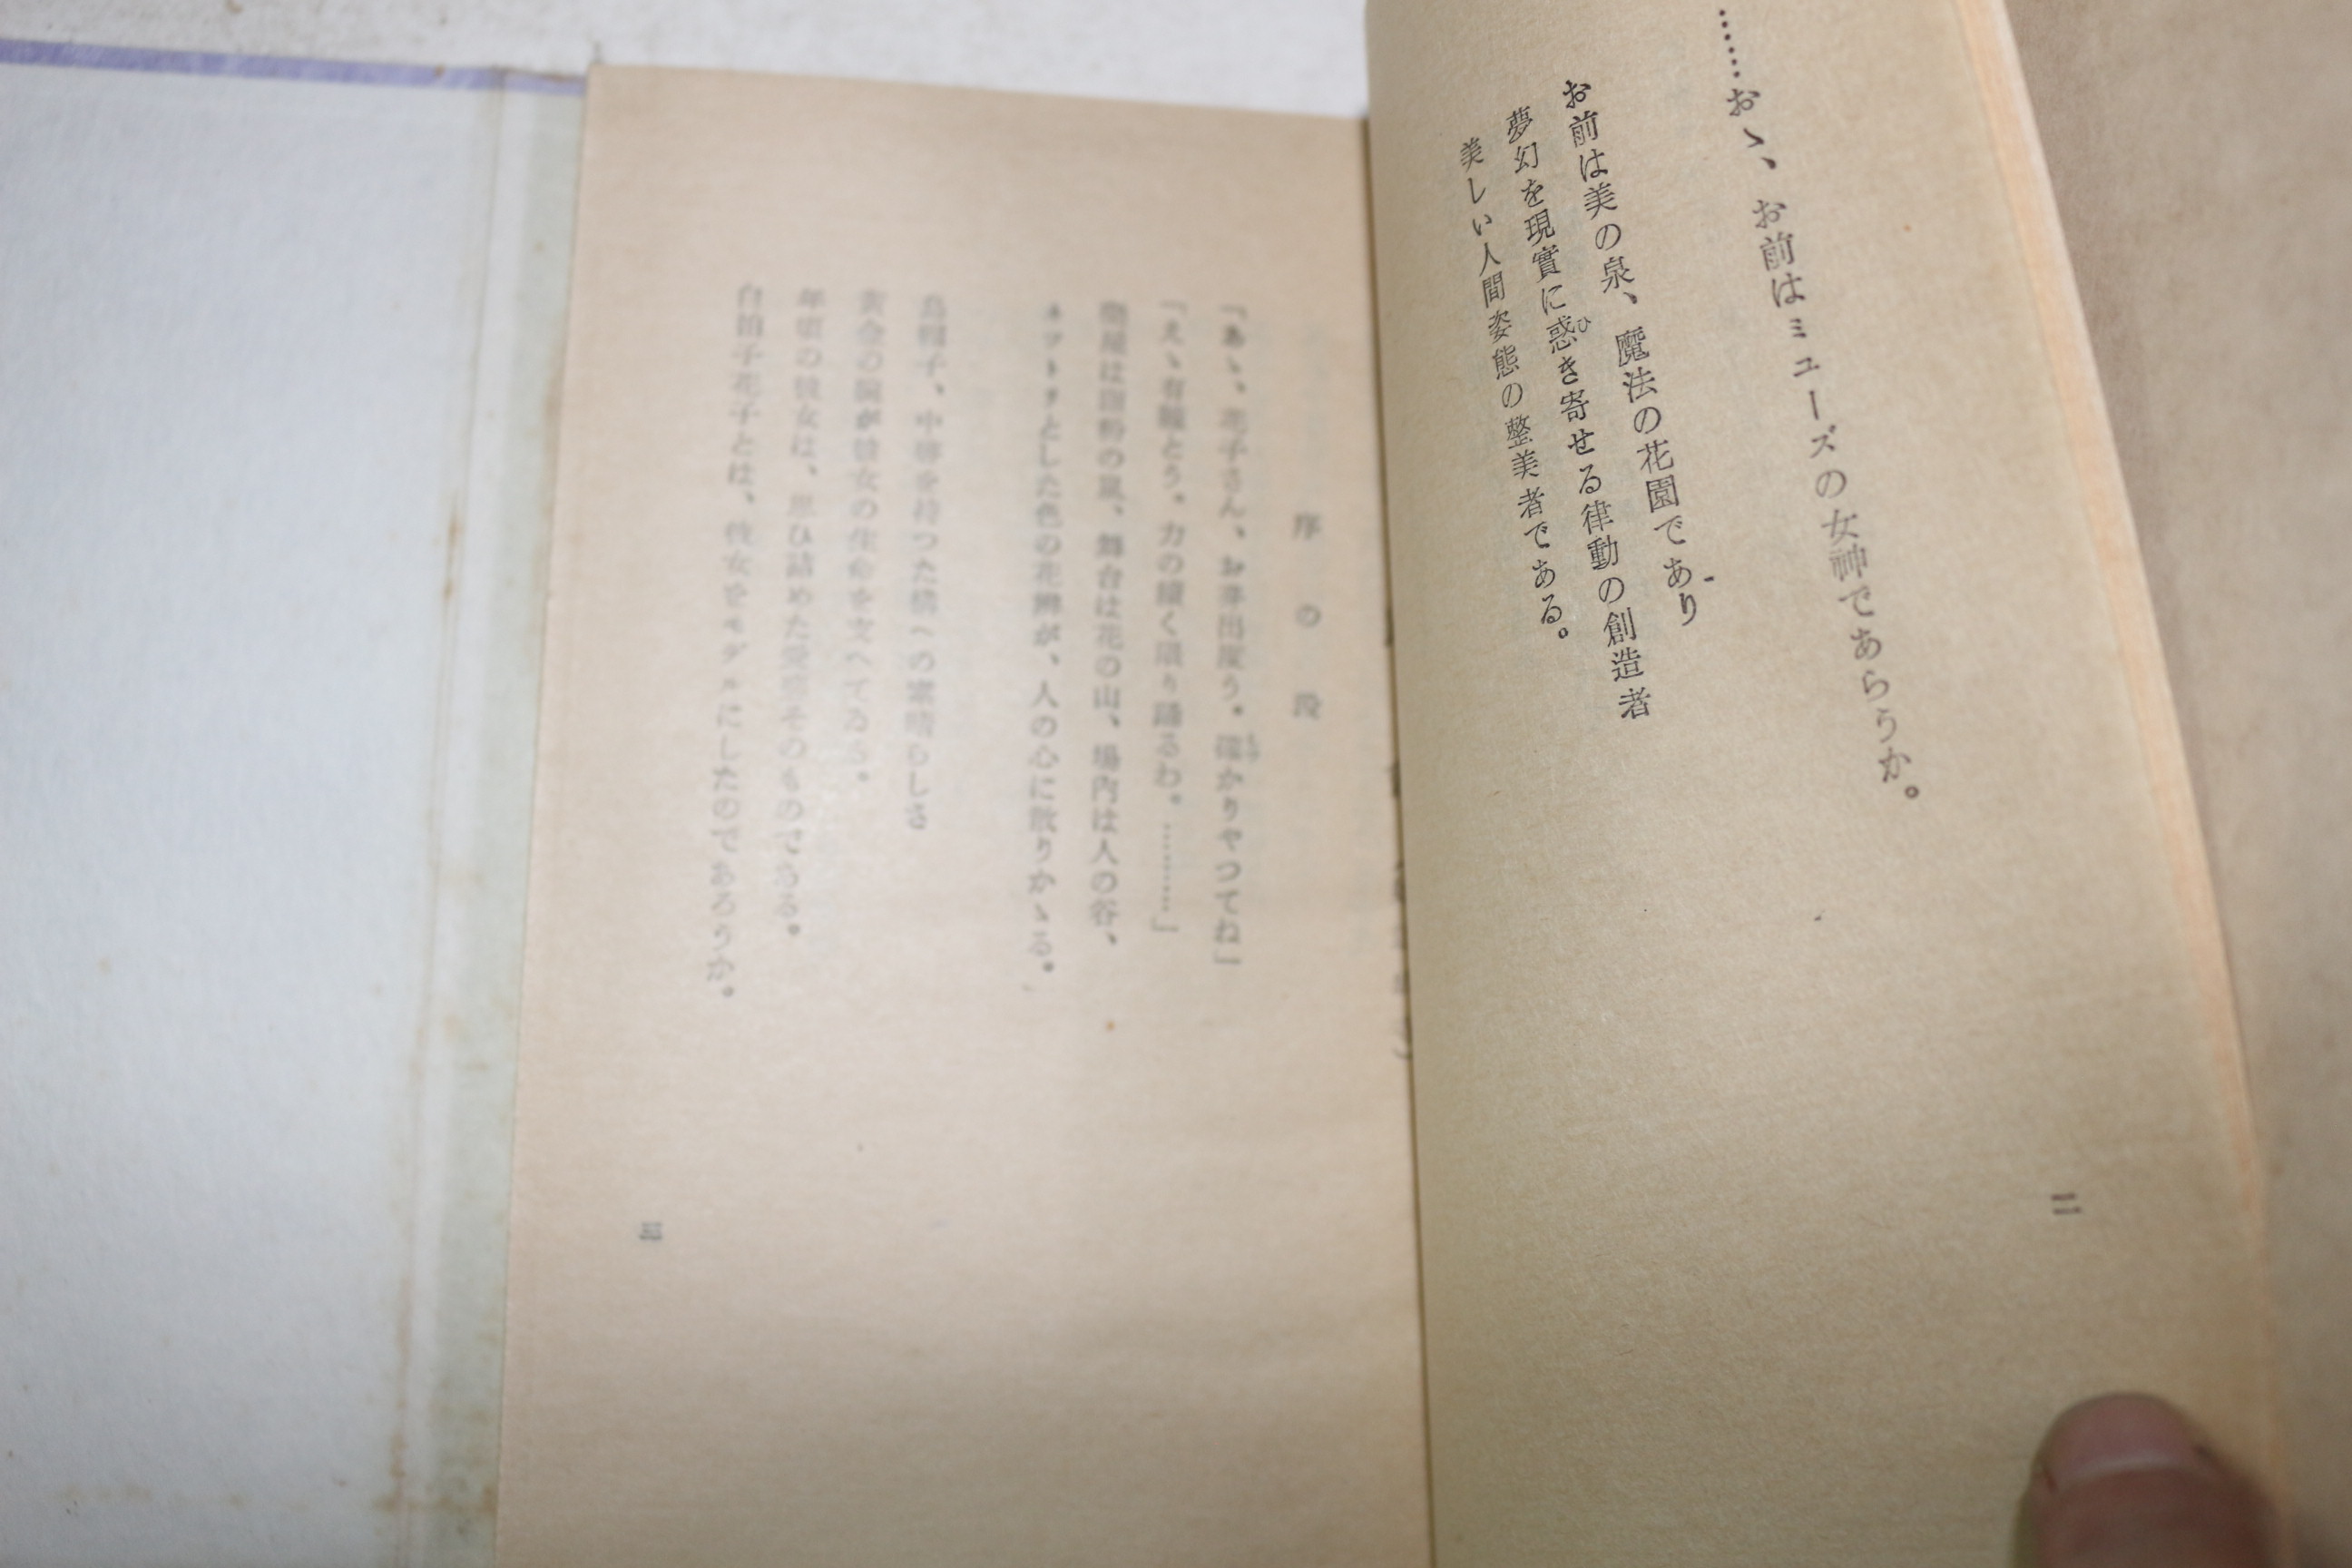 ……おゝ、お前はミューズの女神であらうか。
お前は美の泉、魔法の花園であり
夢幻を現實に惑き寄せる律動の創造者
ひ
美しい人間姿態の整美者である。
二
序の段
「あゝ、花子さん、お芽出度う。確かりやつてね」
しつ
「えゝ有難とう。力の續く限り踊るわ。………」
樂屋は脂粉の嵐、舞台は花の山、場內は人の谷、
ネツトリとした色の花辨が、人の心に散りかゝる。
烏帽子、中啓を持つた構への素晴らしさ
黃金の腕が彼女の生命を支へてゐる。
年頃の彼女は、思ひ詰めた愛慾そのものである。
白拍子花子とは、彼女をモデルにしたのであろうか。
三